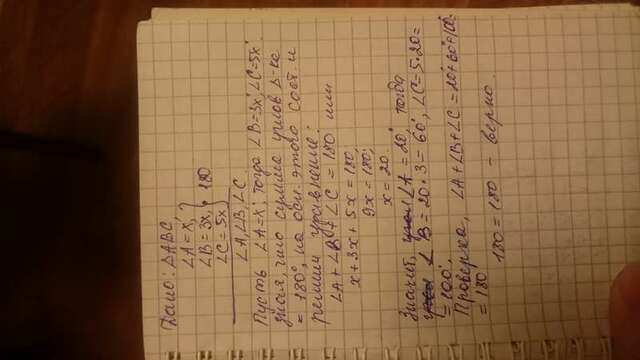 Дано: ΔABC
∠A = x,
∠B = 3x, } 180
∠C = 5x
∠A, ∠B, ∠C
Пусть ∠A = x°, тогда ∠B = 3x°, ∠C = 5x°
зная, что сумма углов Δ-ка
= 180°, на осн. этого сост. и
решим уравнение:
∠A + ∠B + ∠C = 180 или
x + 3x + 5x = 180;
9x = 180;
x = 20.
Значит, ∠A = 20°, тогда
∠B = 20·3 = 60°, ∠C = 5·20 =
= 100°.
Проверка, ∠A + ∠B + ∠C = 20° + 60° + 100° =
= 180
180 = 180 – верно.